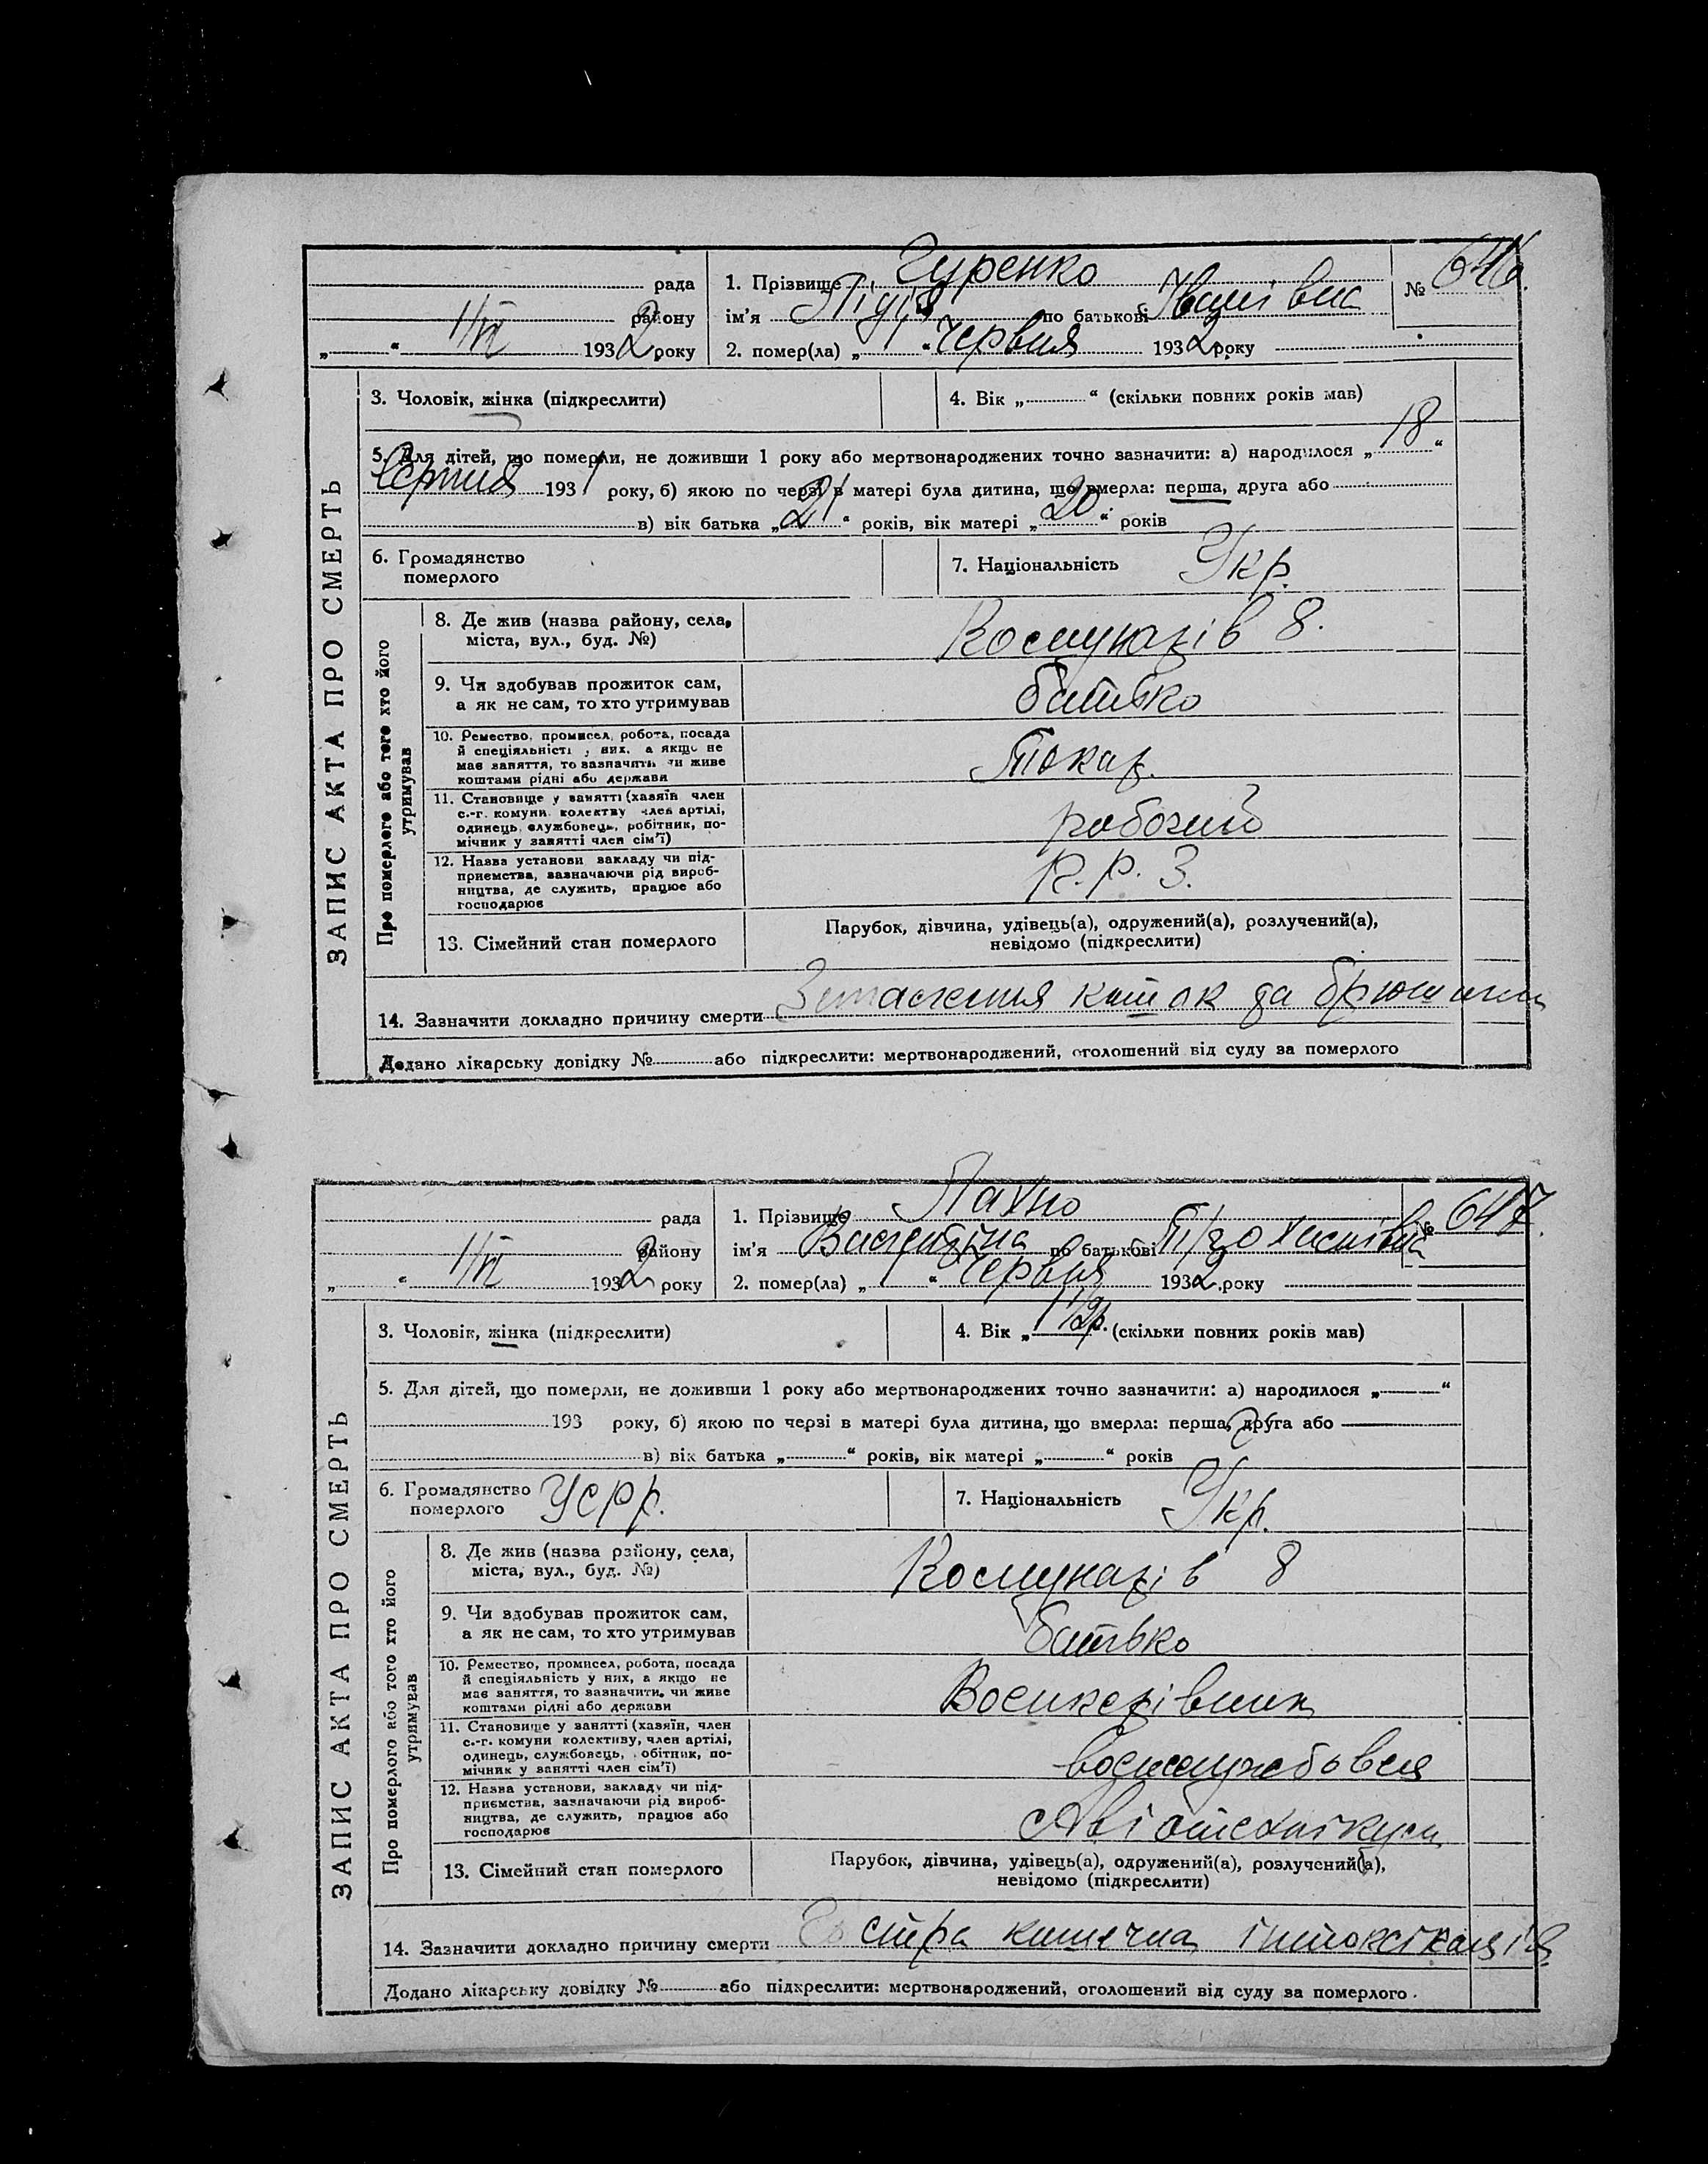 рада
1. Прізвище Гуренко
№ 646.
району
ім’я Лідія по батькові Іванівна
„ “ 1/VI 1932 року
2. помер(ла) „1“ червня 1932 року
ЗАПИС АКТА ПРО СМЕРТЬ
3. Чоловік, жінка (підкреслити)
4. Вік „ “ (скільки повних років мав)
5. Для дітей, що померли, не доживши 1 року або мертвонароджених точно зазначити: а) народилося „18“
Серпня 1931 року, б) якою по черзі в матері була дитина, що вмерла: перша, друга або
в) вік батька „21“ років, вік матері „20“ років
6. Громадянство померлого
7. Національність Укр.
Про померлого або того хто його утримував
8. Де жив (назва району, села, міста, вул., буд. №)
Комунарів 8.
9. Чи здобував прожиток сам, а як не сам, то хто утримував
батько
10. Ремество, промисел, робота, посада й спеціяльність у них, а якщо не має заняття, то зазначить чи живе коштами рідні або держави
Токар.
11. Становище у занятті (хазяїн член с.-г. комуни колективу член артілі, одинець, службовець, робітник, помічник у занятті член сім’ї)
робочий
12. Назва установи закладу чи підприємства, зазначаючи рід виробництва, де служить, працює або господарює
К. Р. З.
13. Сімейний стан померлого
Парубок, дівчина, удівець(а), одружений(а), розлучений(а),
невідомо (підкреслити)
14. Зазначити докладно причину смерти Запалення кишок та
Додано лікарську довідку № або підкреслити: мертвонароджений, оголошений від суду за померлого
рада
1. Прізвище Пахно
№ 647.
району
ім’я Валентіна по батькові
„ “ 1/VI 1932 року
2. помер(ла) „1“ Червня 1932 року
ЗАПИС АКТА ПРО СМЕРТЬ
3. Чоловік, жінка (підкреслити)
4. Вік „1 1/2 р.“ (скільки повних років мав)
5. Для дітей, що померли, не доживши 1 року або мертвонароджених точно зазначити: а) народилося „ “
193 року, б) якою по черзі в матері була дитина, що вмерла: перша, друга або
в) вік батька „ “ років, вік матері „ “ років
6. Громадянство померлого УСРР.
7. Національність Укр.
Про померлого або того хто його утримував
8. Де жив (назва району, села, міста, вул., буд. №)
Комунарів 8
9. Чи здобував прожиток сам, а як не сам, то хто утримував
батько
10. Ремество, промисел, робота, посада й спеціяльність у них, а якщо не має заняття, то зазначити, чи живе коштами рідні або держави
Воєнкерівник
11. Становище у занятті (хазяїн, член с.-г. комуни колективу, член артілі, одинець, службовець, робітник, помічник у занятті член сім’ї)
воєнслужбовця
12. Назва установи, закладу чи підприємства, зазначаючи рід виробництва, де служить, працює або господарює
Авіотехнікум
13. Сімейний стан померлого
Парубок, дівчина, удівець(а), одружений(а), розлучений(а),
невідомо (підкреслити)
14. Зазначити докладно причину смерти Гостра кишечна інтоксікація
Додано лікарську довідку № або підкреслити: мертвонароджений, оголошений від суду за померлого.